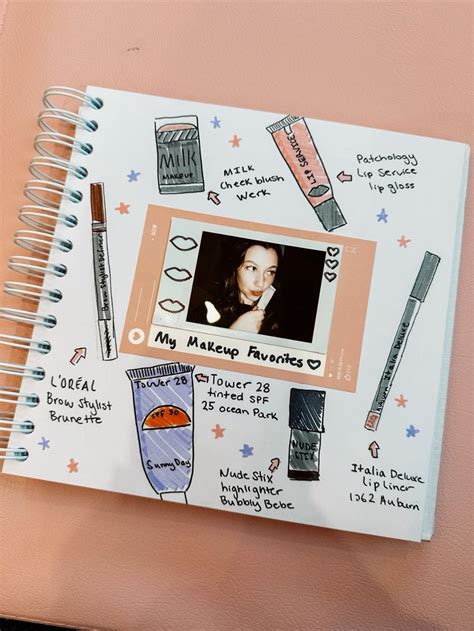 MILK
MAKEUP
MILK
Cheek blush
Werk
LIP SERVICE
Patchology
Lip Service
lip gloss
Brow Stylist Definer
L'ORÉAL
Brow Stylist
Brunette
My Makeup Favorites
TOWER 28
SPF 30
Sunny Day
Tower 28
tinted SPF
25 ocean Park
NUDE
STIX
Nude Stix
highlighter
Bubbly Bebe
Italia Deluxe
Italia Deluxe
lip liner
1062 Auburn